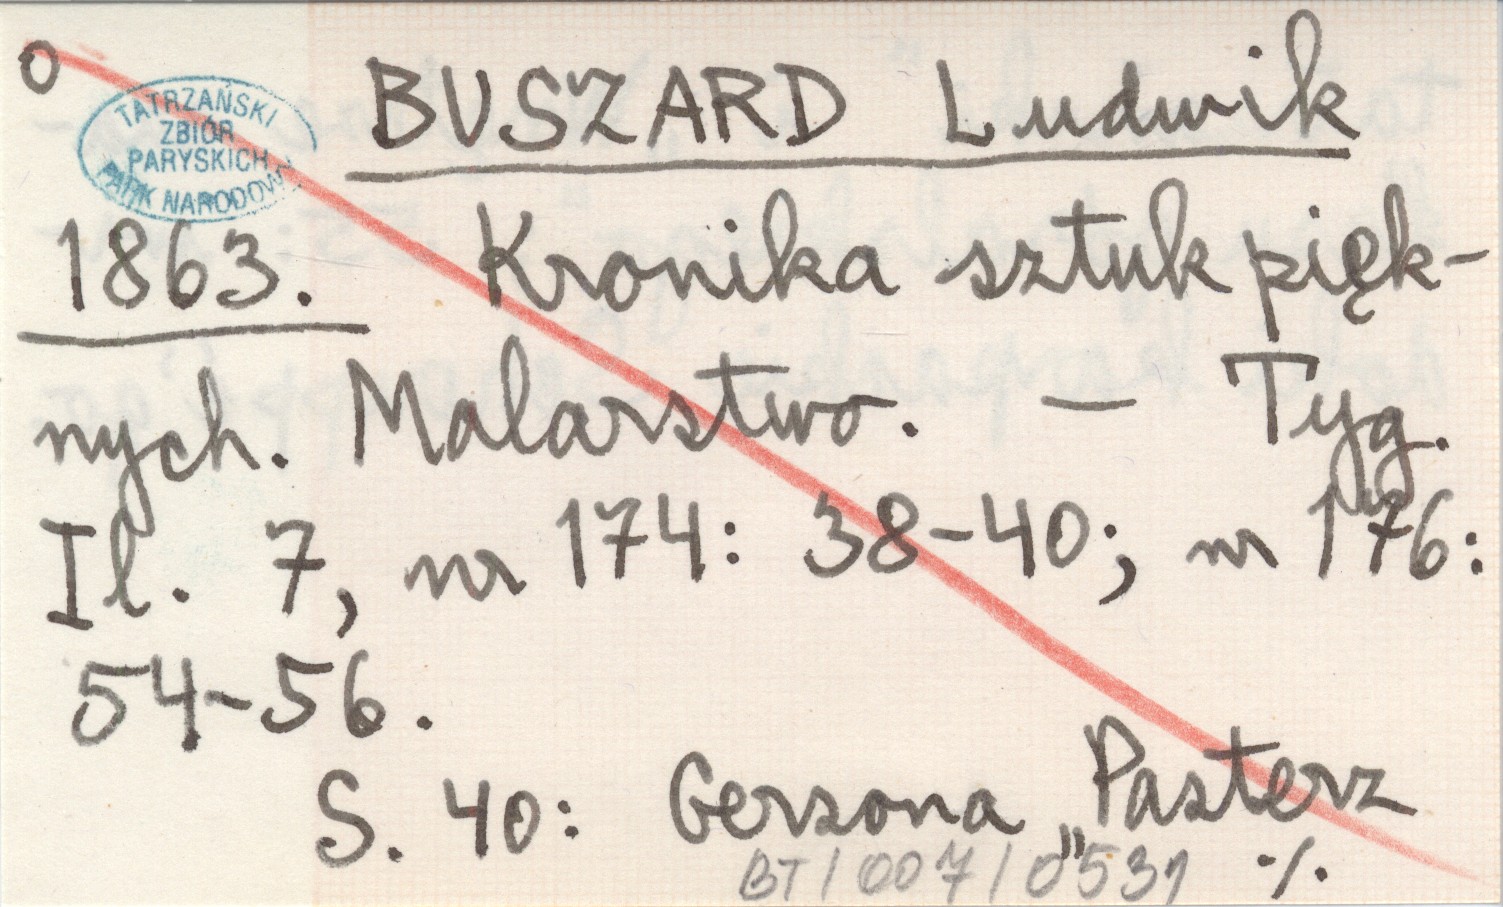 O
TATRZAŃSKI
ZBIÓR
PARYSKICH
PARK NARODOWY
BUSZARD Ludwik
1863. Kronika sztuk pięk-
nych. Malarstwo. — Tyg.
Il. 7, nr 174: 38-40; nr 176:
54-56.
S. 40: Gerszona „Pasterz
BT/007/0531 ./.